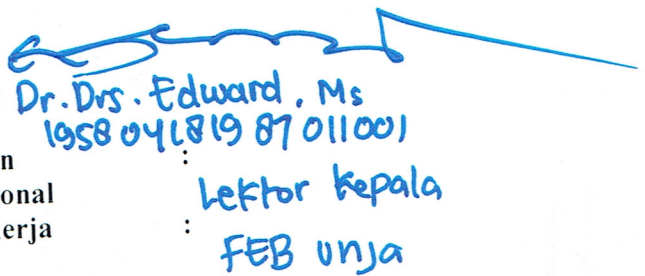 Dr. Drs. Edward, Ms
195804181987011001
n :
onal Lektor kepala
erja :
FEB unja